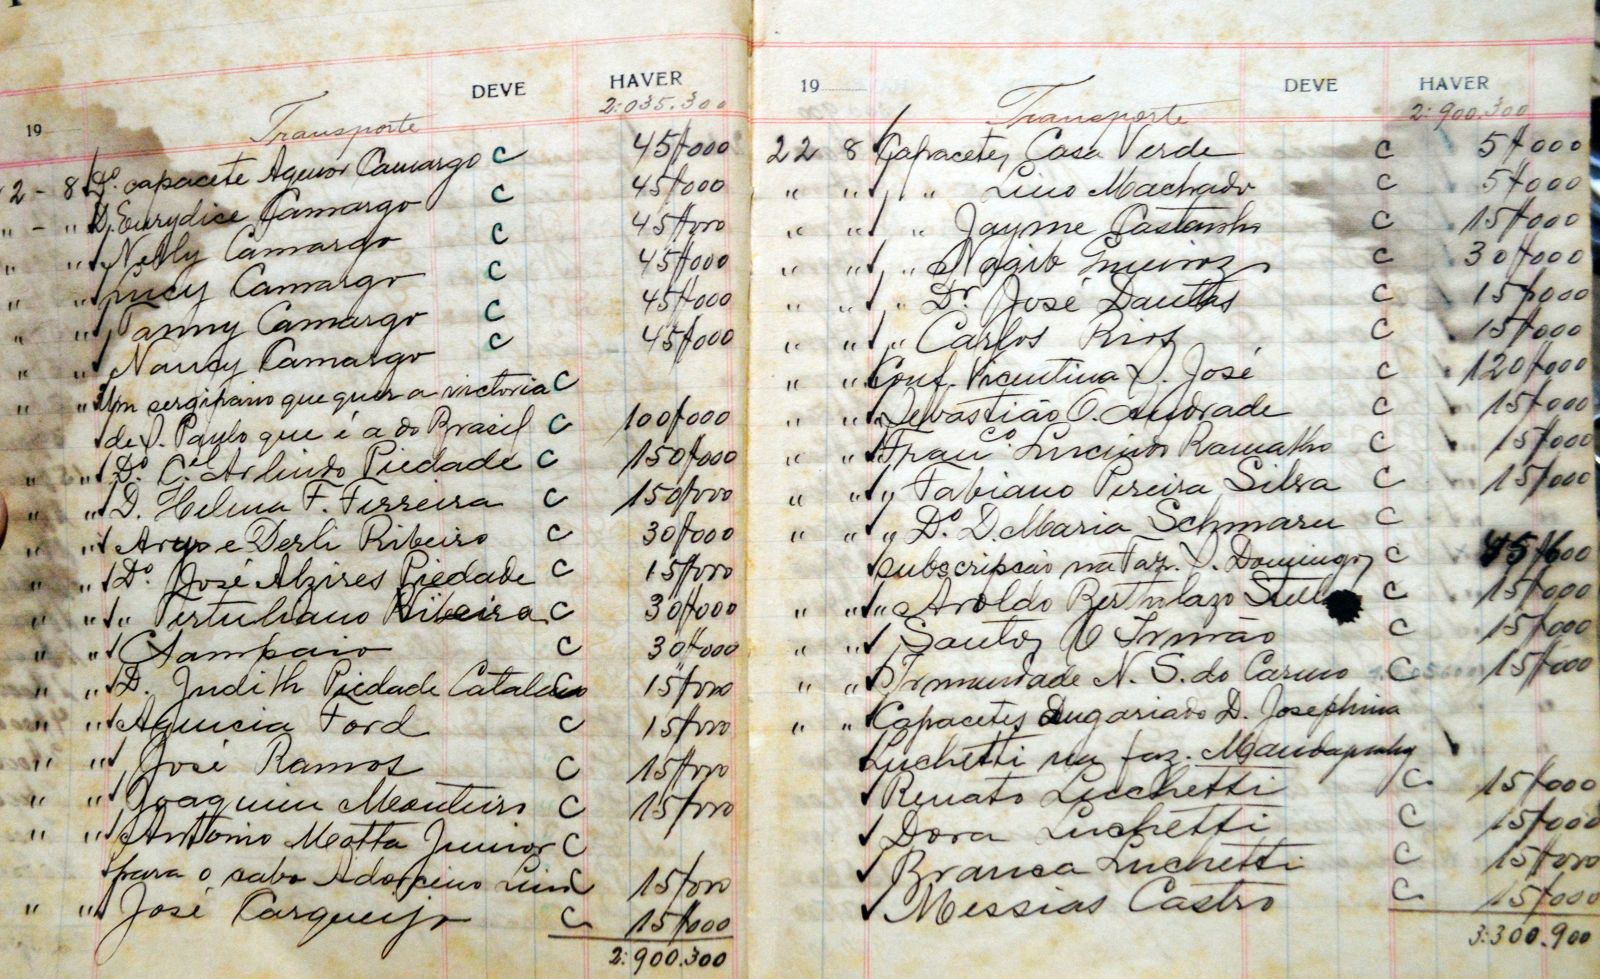 DEVE HAVER
2:035.300
19 Transporte
2 - 8 Do. capacete Agenor Camargo C 45$000
" - " D. Eurydice Camargo C 45$000
" " Nelly Camargo C 45$000
" " Lucy Camargo C 45$000
" " Fanny Camargo C 45$000
" " Nancy Camargo C 45$000
" " Um sergipano que quer a victoria C
de S. Paulo que é a do Brasil C 100$000
" " Do. Cel. Arlindo Piedade C 150$000
" " D. Helena F. Ferreira C 150$000
" " Arys e Derli Ribeiro C 30$000
" " Do. José Alzires Piedade C 15$000
" " " Tertuliano Ribeiro C 30$000
" " Sampaio C 30$000
" " D. Judith Piedade Cataldo C 15$000
" " Agencia Ford C 15$000
" " José Ramos C 15$000
" " Joaquim Monteiro C 15$000
" " Antonio Motta Junior C
para o cabo Lima C 15$000
" " José Carqueijo C 15$000
2:900.300
19 DEVE HAVER
Transporte 2:900.300
22 8 Capacetes Casa Verde C 5$000
" " " Lino Machado C 5$000
" " " Jayme Castanho C 15$000
" " " Nagib C 30$000
" " " Dr José Dantas C 15$000
" " " Carlos Rios C 15$000
" " Conf. Vicentina S. José C 120$000
" " Sebastião O. Andrade C 15$000
" " Franco. Lucindo Ramalho C 15$000
" " " Fabiano Pereira Silva C 15$000
" " " Do. D Maria C
subscripção na Faz. S. Domingos C 45$600
" " " Aroldo C 15$000
" " Santos & Irmão C 15$000
" " Irmandade N. S. do Carmo C 15$000
" " Capacetes Angariado D. Josephina
Luchetti na faz.
Renato Luchetti C 15$000
Dora Luchetti C 15$000
Branca Luchetti C 15$000
Messias Castro C 15$000
3:300.900